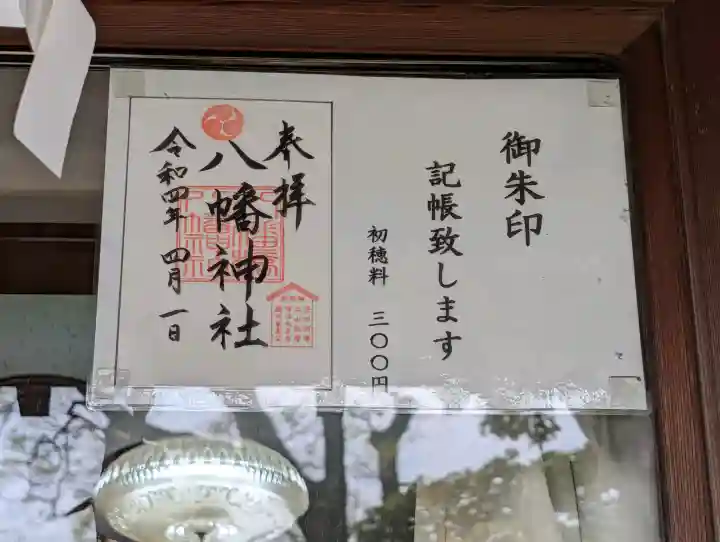 御朱印
記帳致します
初穂料 三〇〇円
奉拝
八幡神社
令和四年 四月一日